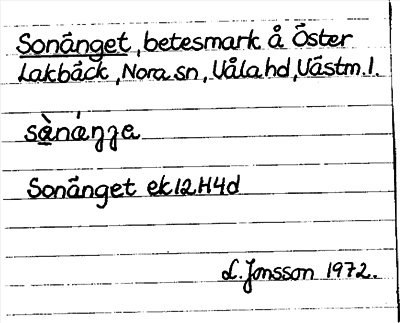 Sonänget, betesmark å Öster
Lakbäck, Nora sn, Våla hd, Västm. l.
sànáŋga
Sonänget ek 12H4d
L. Jonsson 1972.